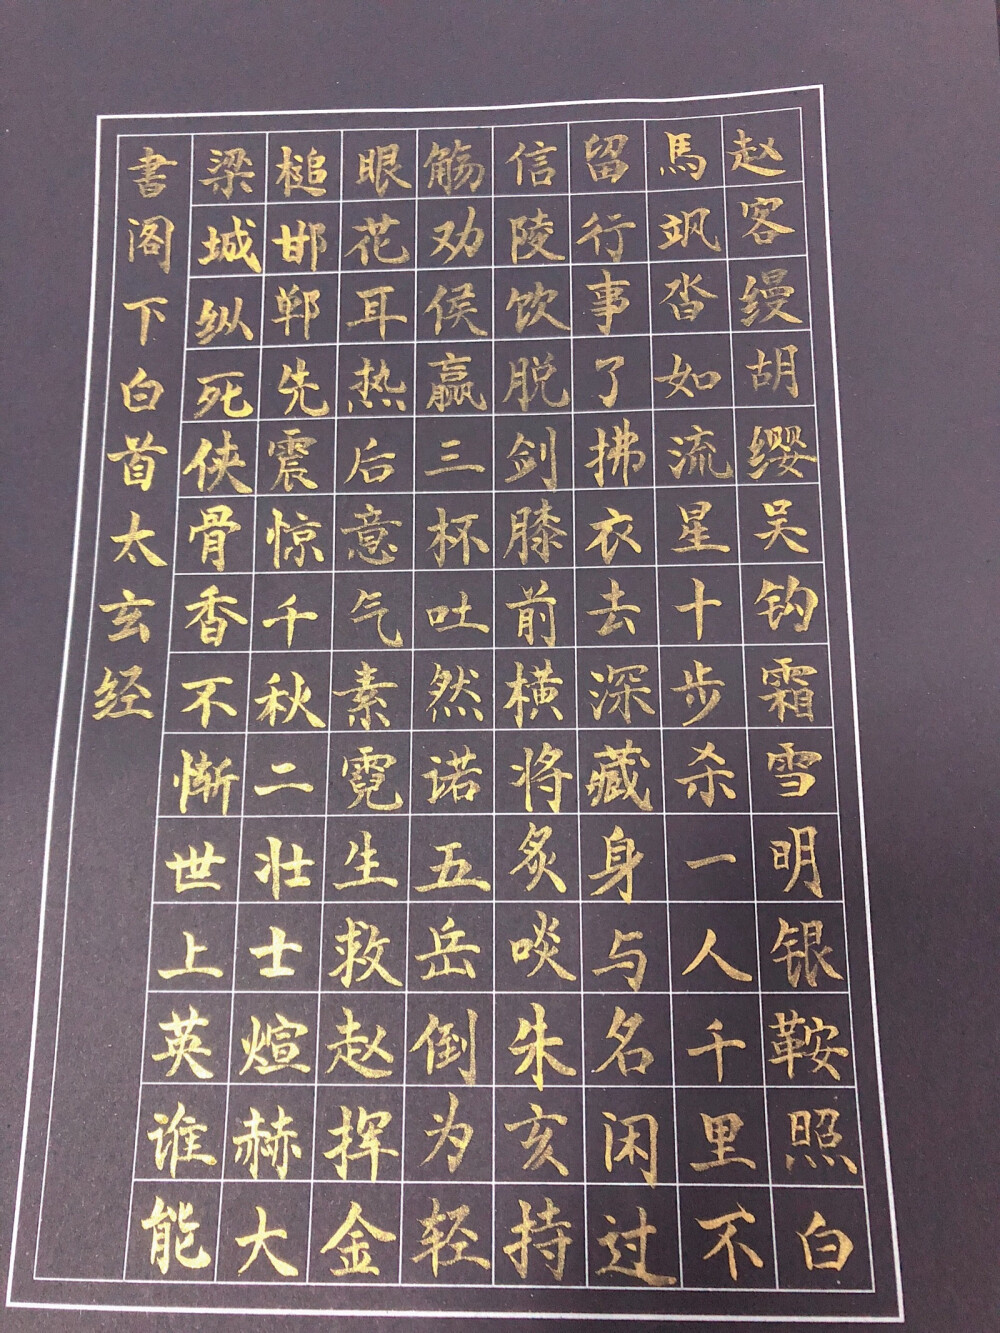 赵客缦胡缨吴钩霜雪明银鞍照白
馬飒沓如流星十步杀一人千里不
留行事了拂衣去深藏身与名闲过
信陵饮脱剑膝前横将炙啖朱亥持
觞劝侯赢三杯吐然诺五岳倒为轻
眼花耳热后意气素霓生救赵挥金
槌邯郸先震惊千秋二壮士煊赫大
梁城纵死侠骨香不惭世上英谁能
書阁下白首太玄经